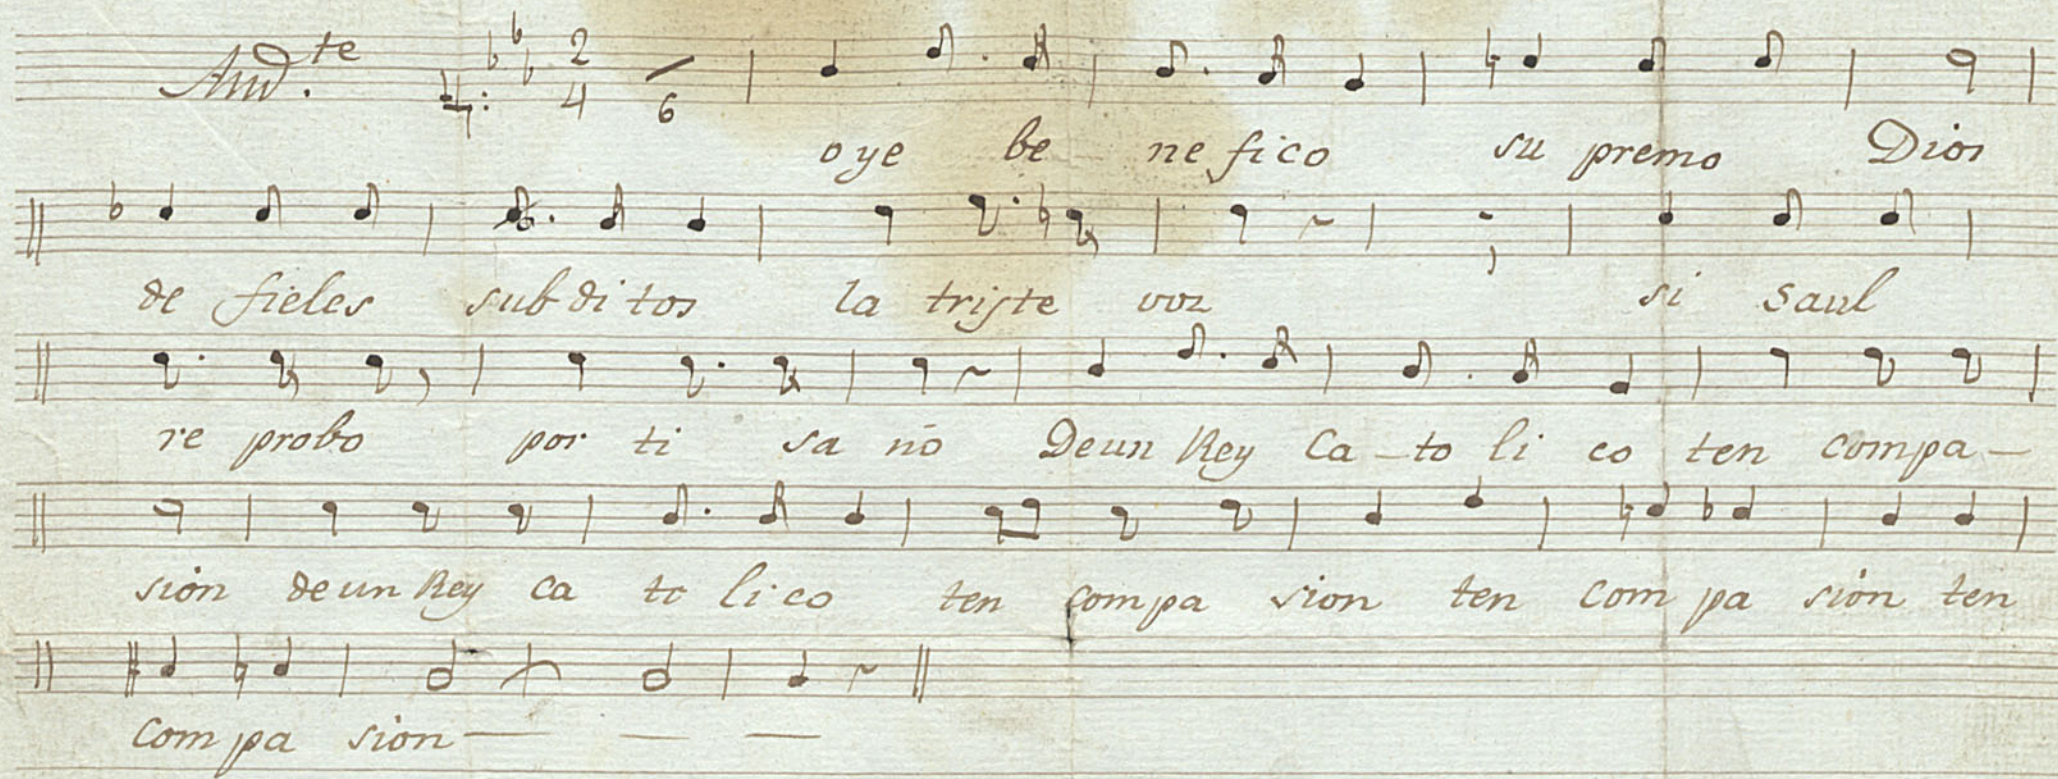 And.te 2 4 6
oye be ne fico su premo Dios
de fieles sub di tos la triste voz si Saul
re probo por ti sa nó De un Rey Ca-to li co ten compa-
sion de un Rey ca to li co ten compa sion ten com pa sion ten
com pa sion